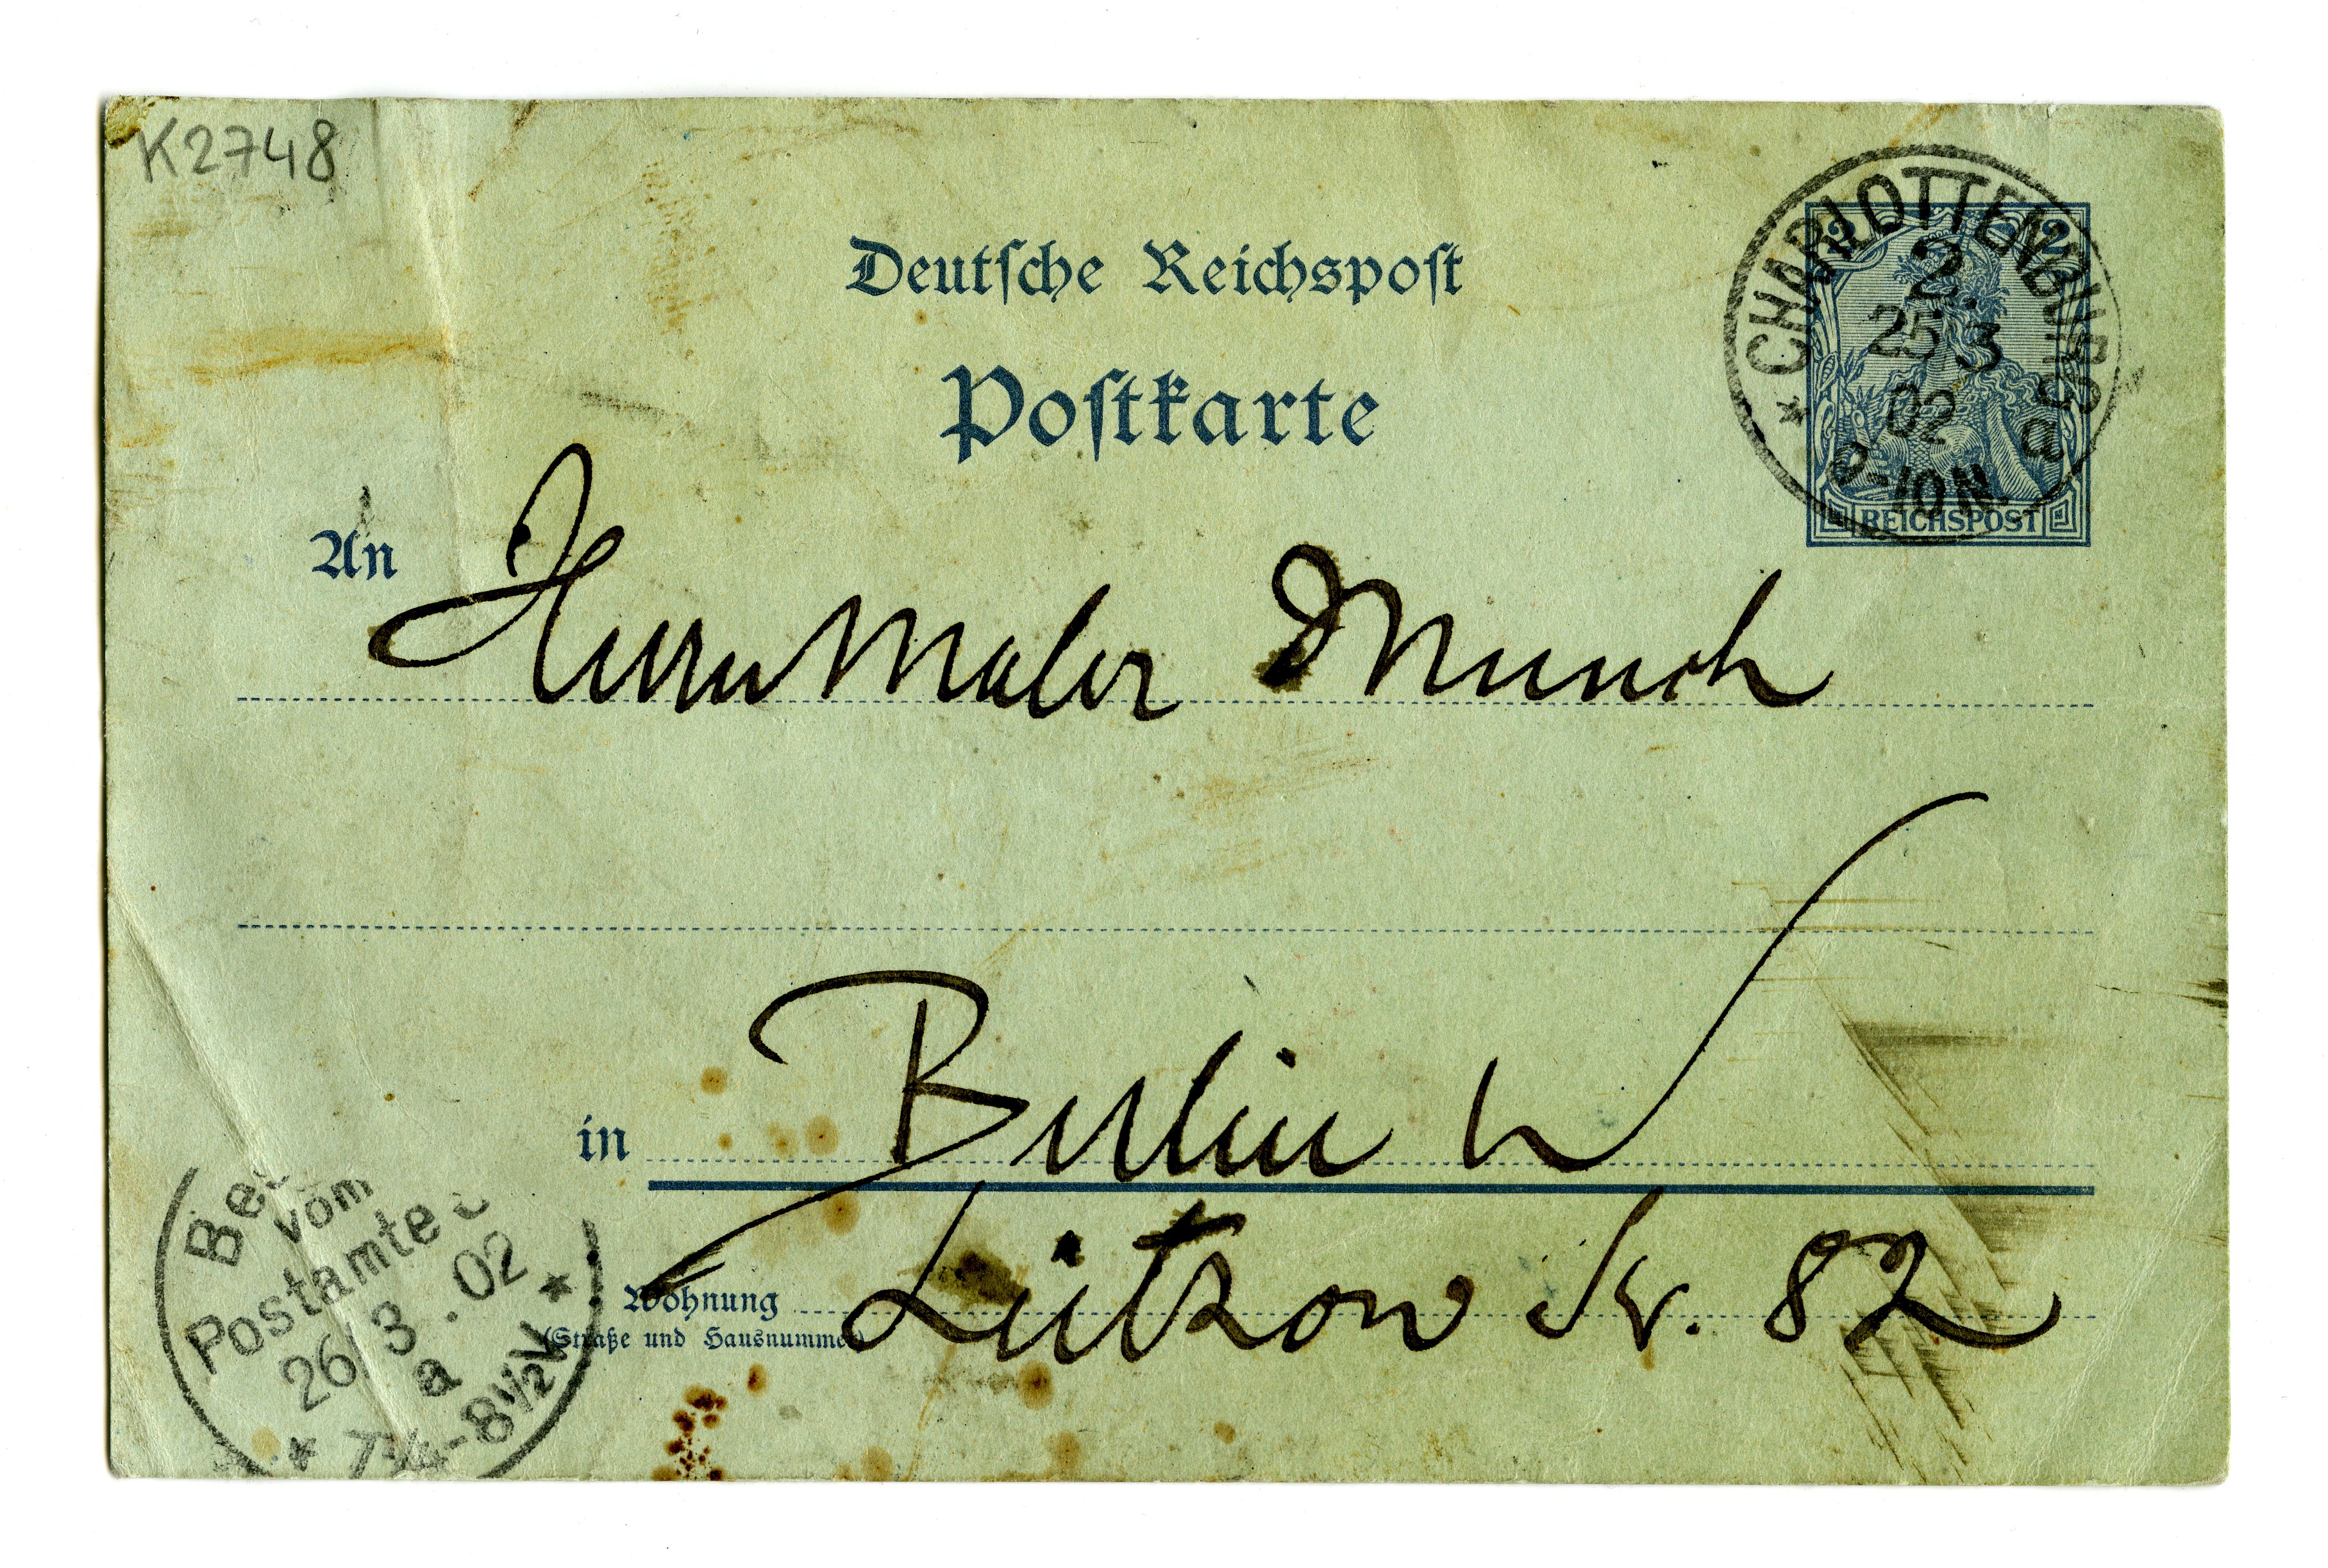 K2748
Deutsche Reichspost
Postkarte
2 2
CHARLOTTENBURG
2.
25 3
02
a
9-10 N.
REICHSPOST
An Herrn Maler Munch
in Berlin W
Wohnung Lützow Str. 82
(Straße und Hausnummer)
vom
Postamte
26/3.02
a
7¼-8½V